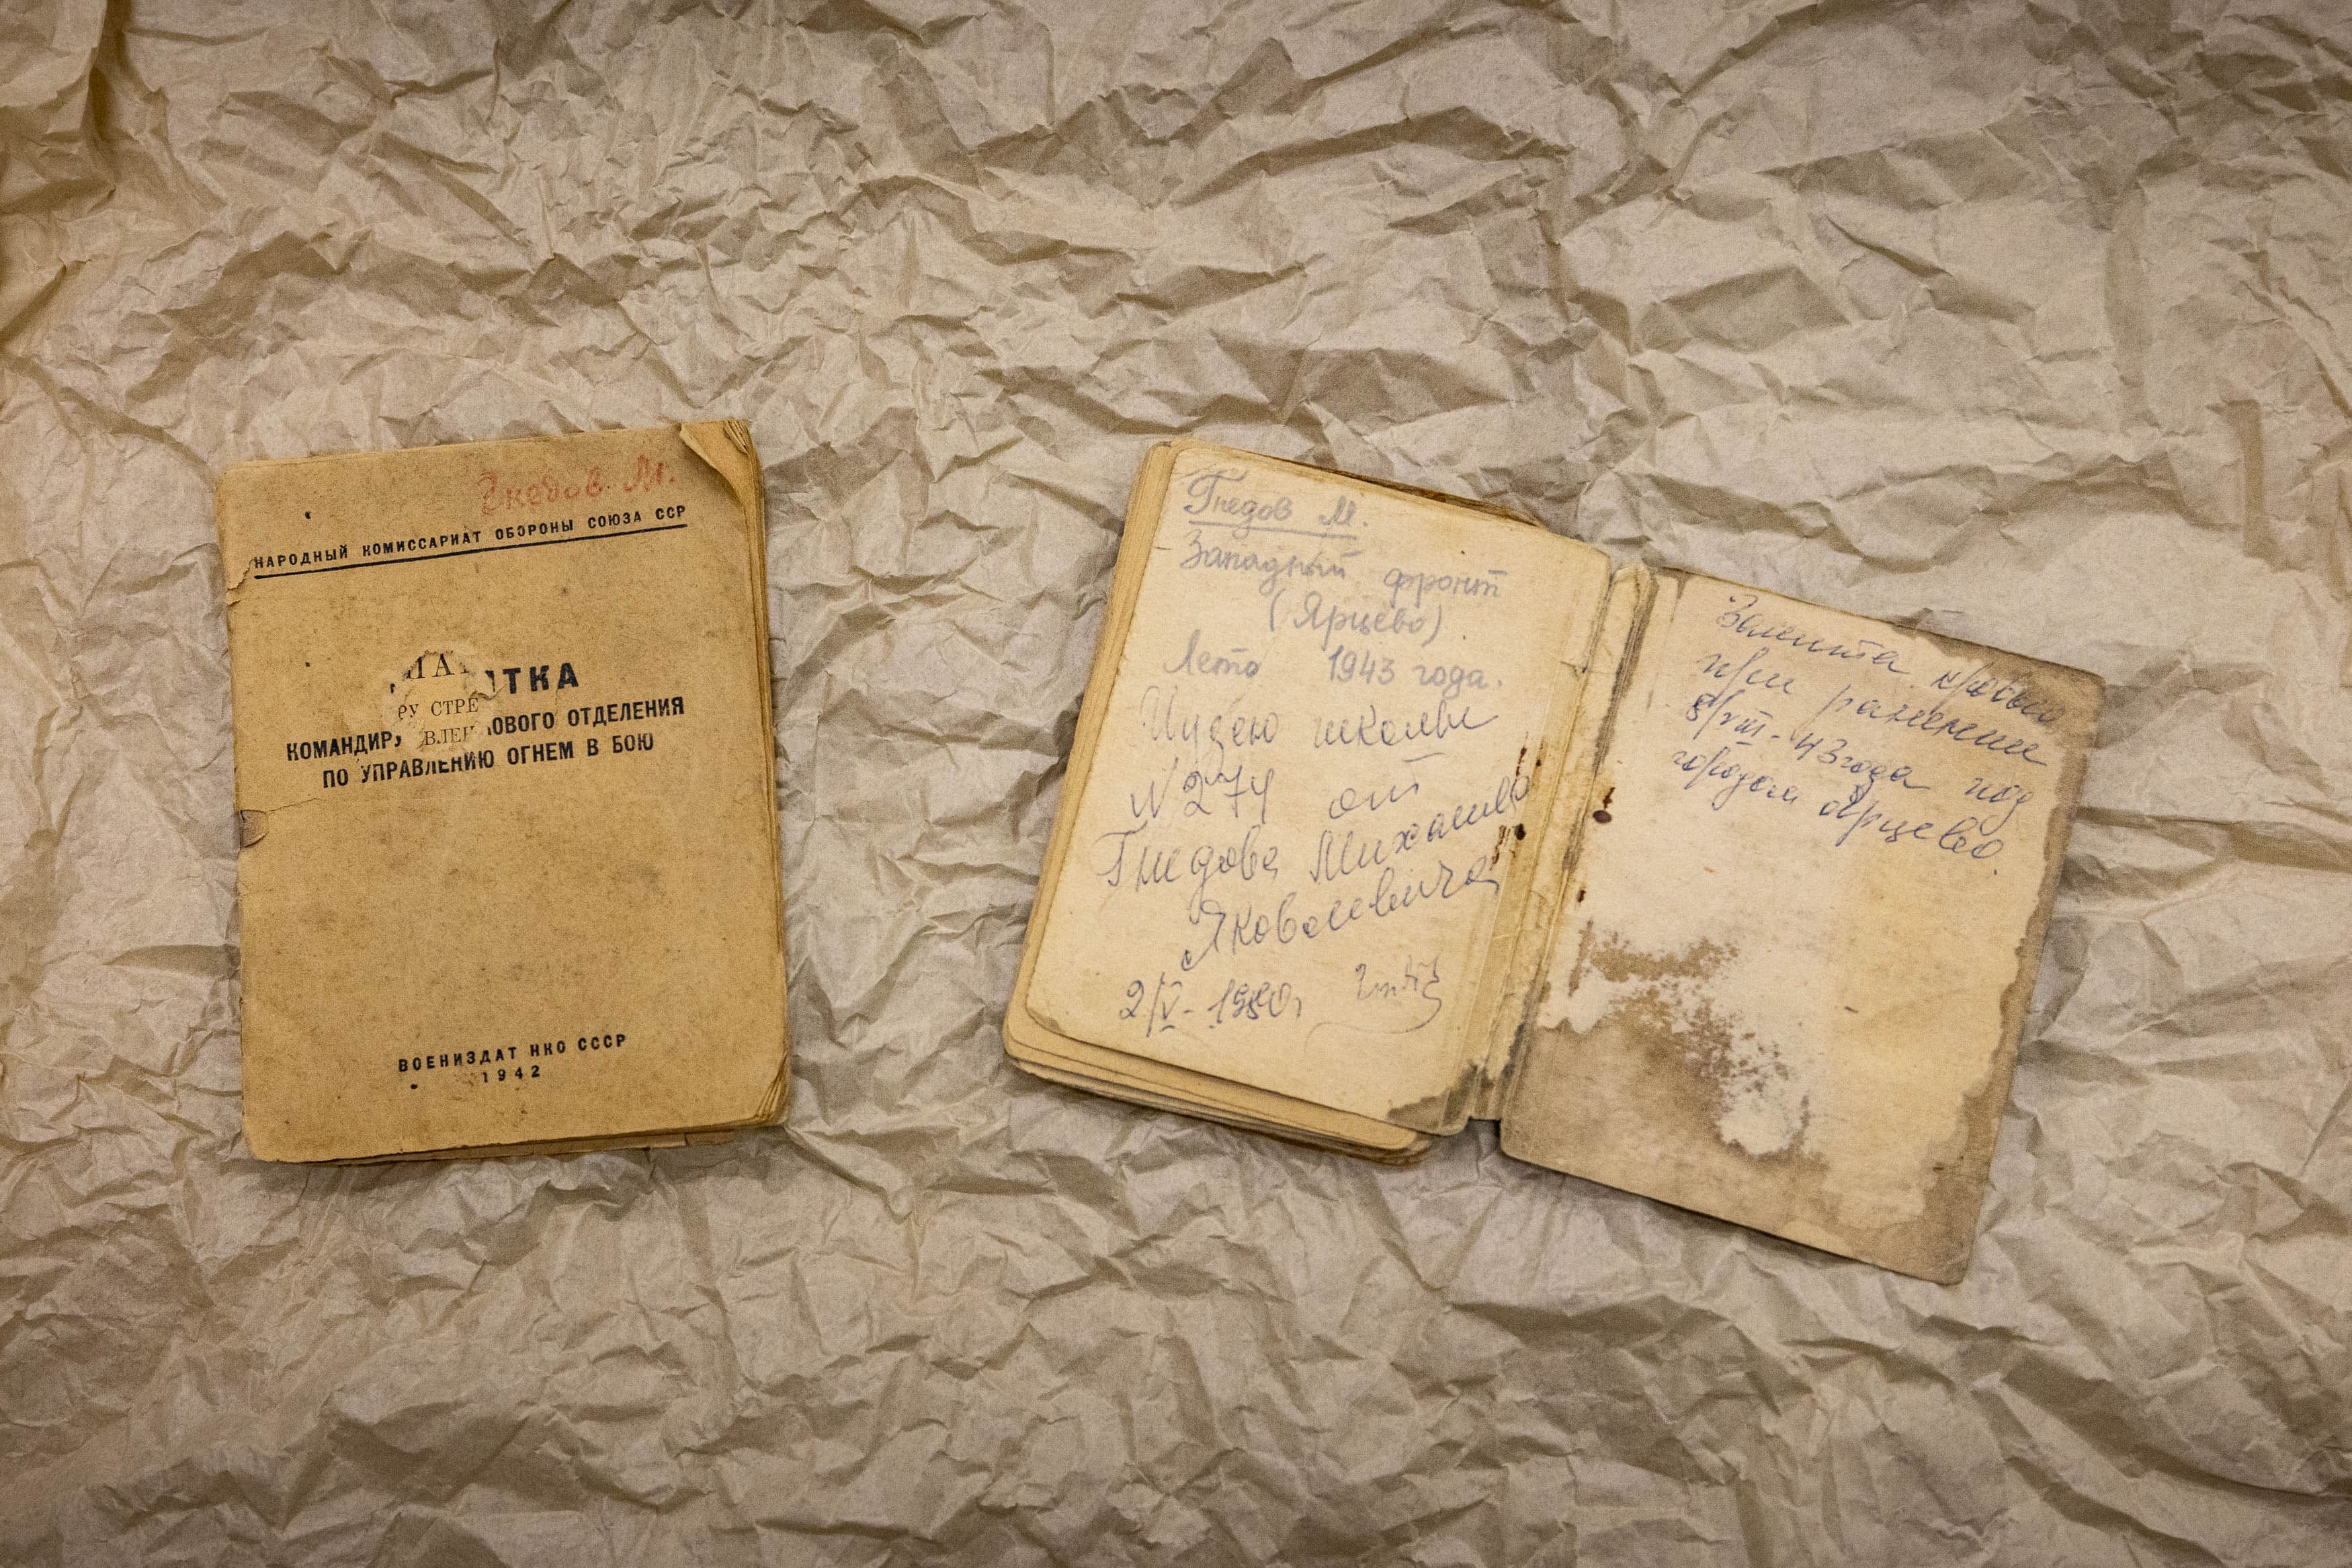 Гнедов М.
НАРОДНЫЙ КОМИССАРИАТ ОБОРОНЫ СОЮЗА ССР
ТКА
КОМАНДИРУ СТРЕЛКОВОГО ОТДЕЛЕНИЯ
ПО УПРАВЛЕНИЮ ОГНЕМ В БОЮ
ВОЕНИЗДАТ НКО СССР
1942
Гнедов М.
Западный фронт
(Ярцево)
Лето 1943 года.
Музею школы
N 274 от
Гнедова Михаила
Яковлевича
2/IV- 1980г
Залита кровью
при ранении
8/VIII-43 года под
городом Ярцево.